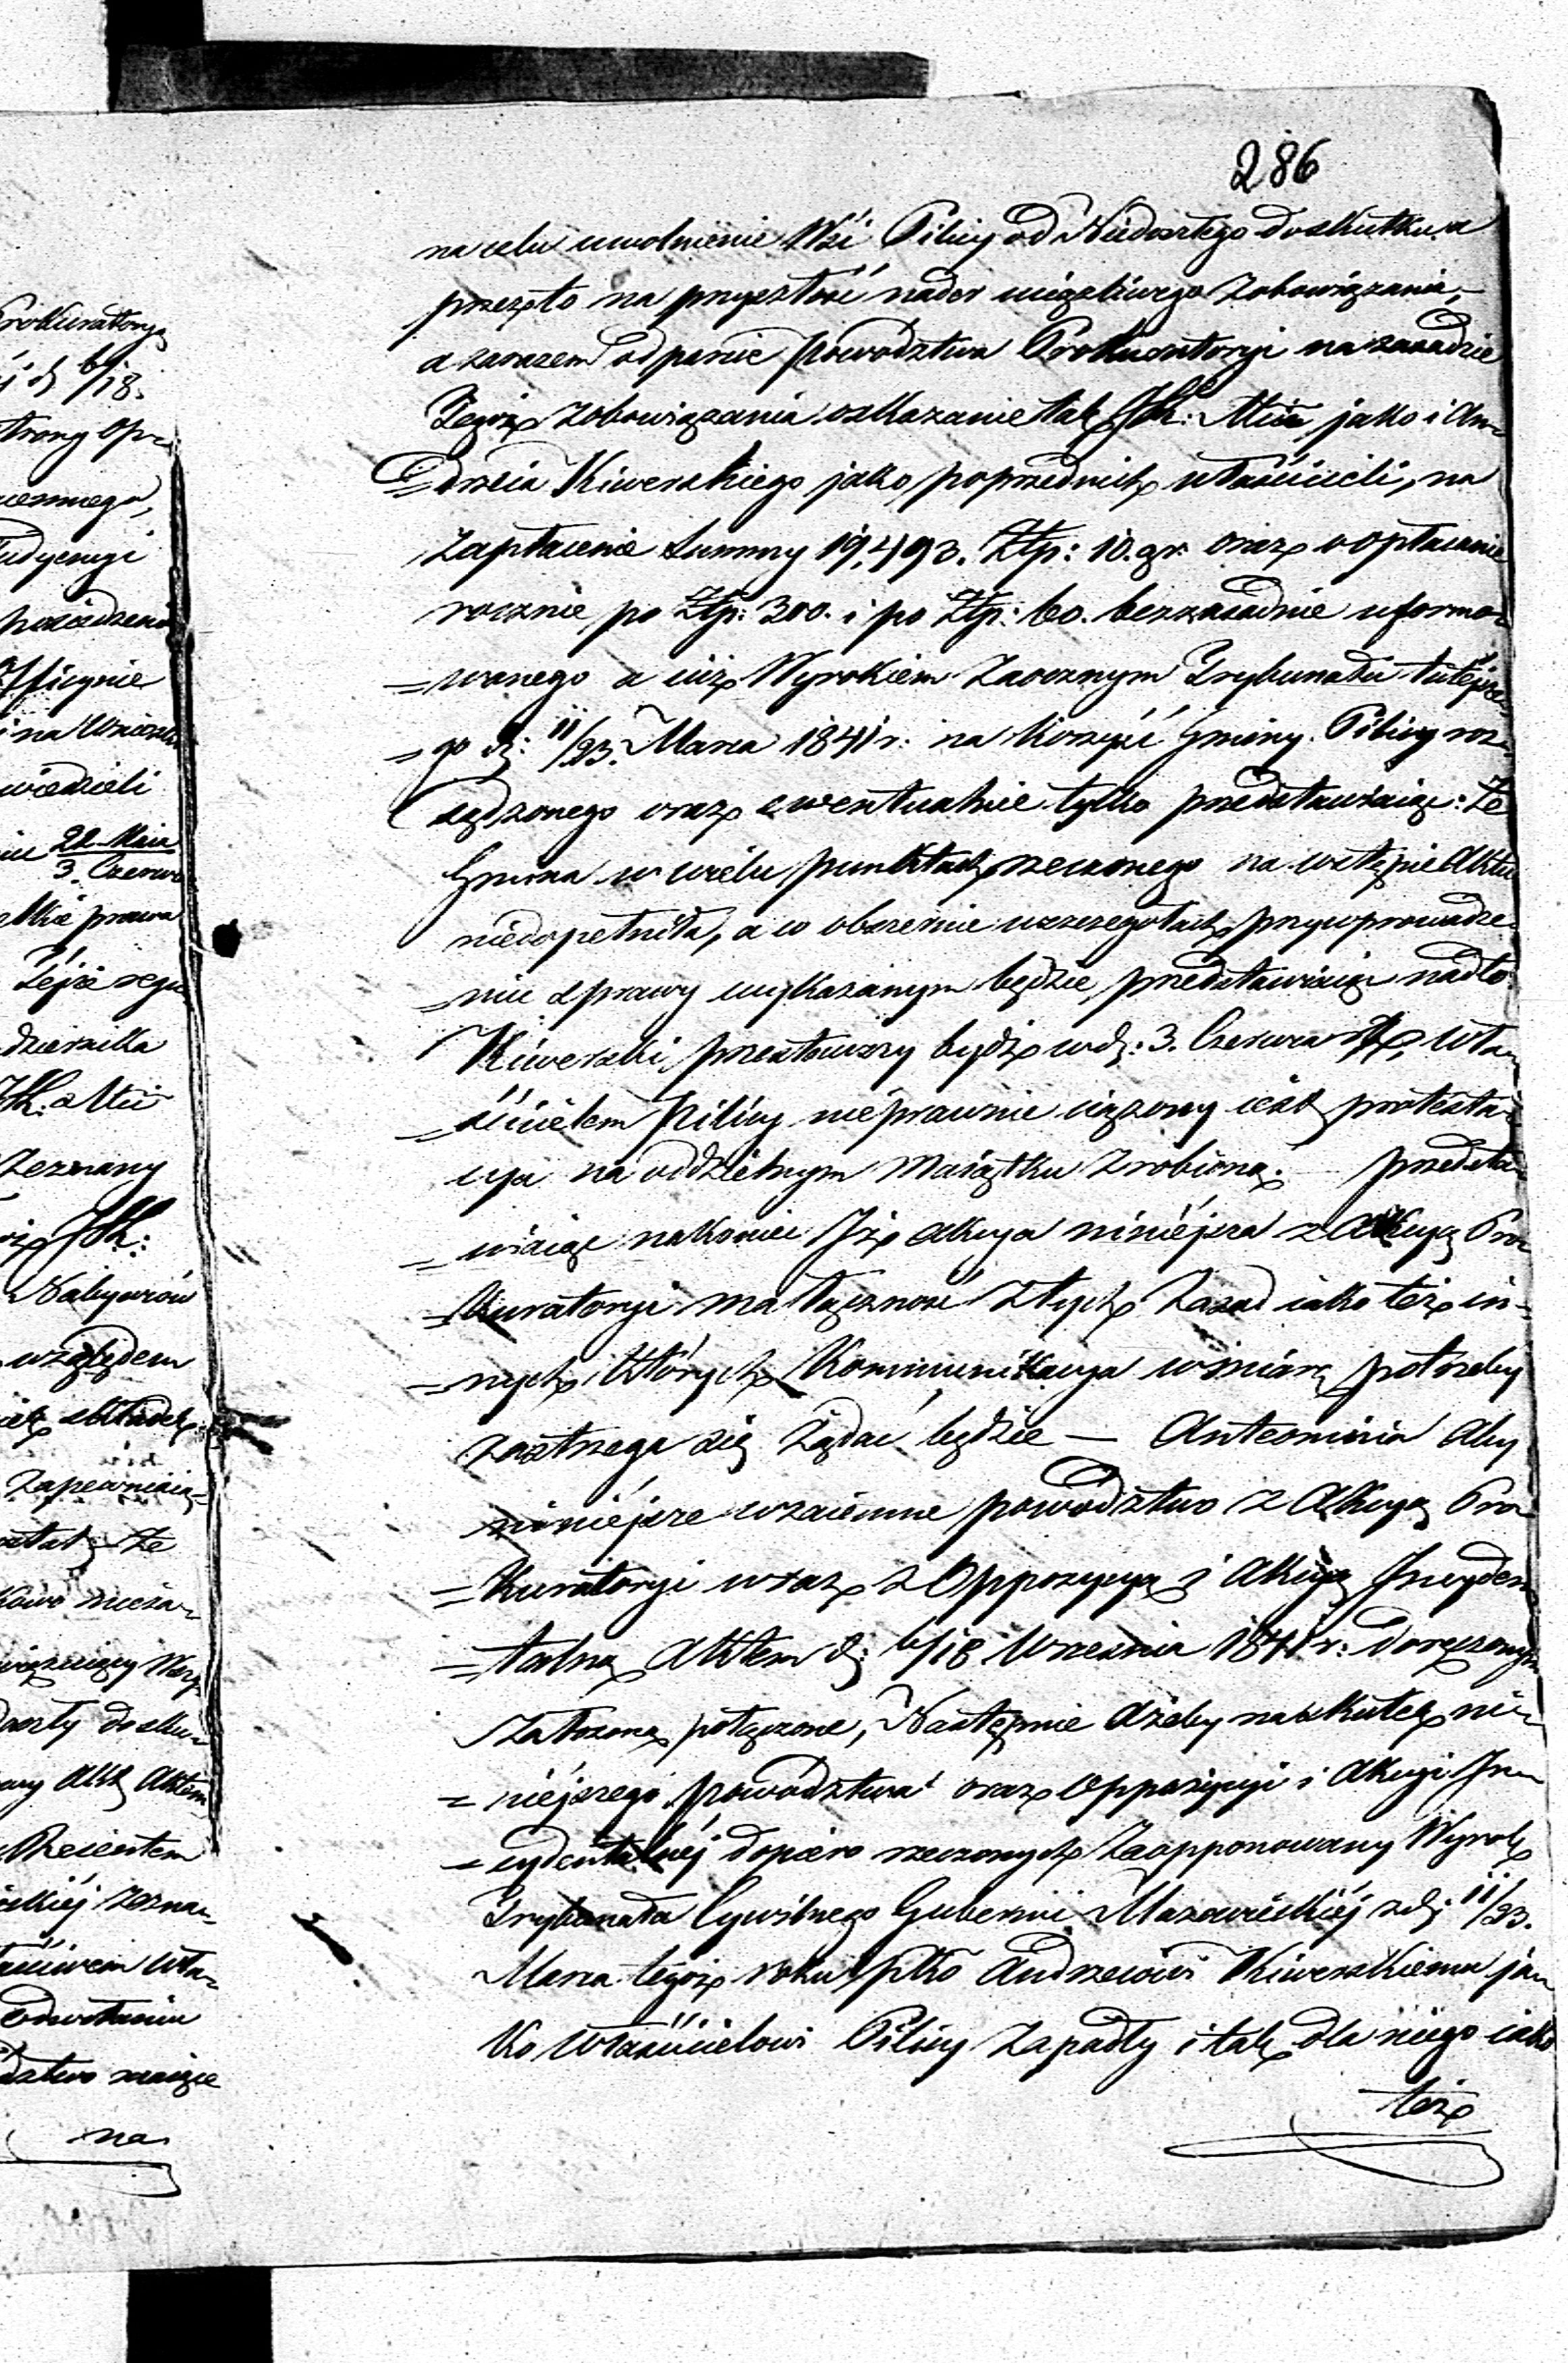 286
na celu uwolnienie Wsi Pilicy od Niedoszłego do skutku a
przezto na przyszłość nader uciążliwego Zobowiązania,
a zarazem odparcie powództwa Prokuratoryi na zasadzie
Tegoż Zobowiązania o skazanie tak JK: Mią jako i An=
=drzeia Kiwerskiego jako poprzednich właścicieli, na
Zapłacenie Summy 19,493. Złp: 10. gr. oraz o opłacanie
rocznie po Złp: 300. i po Złp: 60. bezzasadnie uformo=
=wanego a iuż Wyrokiem Zaocznym Trybunału tutejsze=
=go d: 11/23. Marca 1841 r: na korzyść Gminy Pilicy roz=
sądzonego oraz ewentualnie tylko przedstawiaiąc: Że
Gmina w wielu punktach rzeczonego na wstępie Aktu
niedopełniła, a co obszernie w szczegółach przy wprowadze=
=niu sprawy wykazanym będzie, przedstawiaiąc nadto
Kiwerski przestawszy bydź w d: 3. Czerwca wła=
=ścicielem Pilicy nieprawnie ciążony iest protesta=
cya na oddzielnym Maiątku zrobioną. przedsta=
=wiaiąc nakoniec Iż akcya niniejsza z Akcyą Pro=
=kuratoryi ma łączność z tych Zasad iako też in=
=nych których Kommunikacya w miarę potrzeby
zastrzega się żądać będzie — Anteominia Aby
niniejsze wzaiemne powództwo z Akcyą Pro=
=kuratoryi wraz z Oppozycyą i Akcyą Incyden=
=talną Aktem d: 6/18 Września 1841 r: doręczonym
założoną połączone, Następnie ażeby na skutek ni=
=niejszego powództwa oraz Oppozycyi i Akcyi In=
=cydentalnéj dopiero rzeczonych Zaopponowany Wyrok
Trybunału Cywilnego Gubernii Mazowieckiéj z d: 11/23.
Marca tegoż roku płko Andrzeiowi Kiwerskiemu ja=
ko Właścicielowi Pilicy zapadły i tak dla niego iako
też
Prokuratoryą
6/18.
strony Op=
Audyencyi
Officynie
wiedzieli
22 Maia
3. Czerwca
prawa
JK:
Zeznany
JK:
Nabywców
względem
Zapewniaią=
Że
doszły do sku=
Aktem
Rejentem
zezna=
Wła=
na